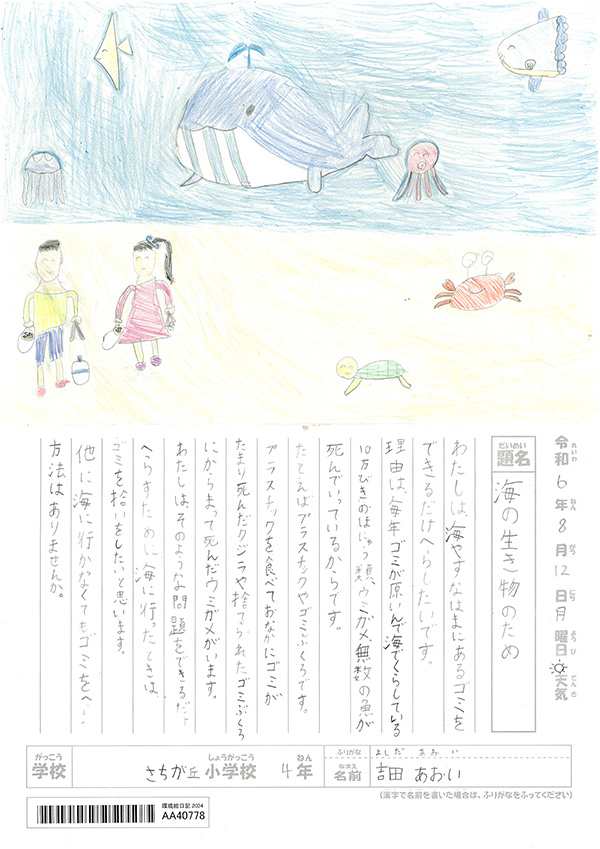 令和6年8月12日月曜日 天気
れいわ ねん がつ にち ようび てんき
だいめい
題名
海の生き物のため
わたしは、海やすなはまにあるゴミを
できるだけへらしたいです。
理由は、毎年ゴミが原いんで海でくらしている
10万びきのほにゅう類、ウミガメ、無数の魚が
死んでいっているからです。
たとえばプラスチックやゴミぶくろです。
プラスチックを食べておなかにゴミが
たまり死んだクジラや捨てられたゴミぶくろ
にからまって死んだウミガメがいます。
わたしは、そのような問題をできるだけ
へらすために海に行ったときは、
ゴミを拾いをしたいと思います。
他に海に行かなくてもゴミをへらす
方法はありませんか。
がっこう しょうがっこう ねん
学校 さちが丘小学校 4年
ふりがな よしだ あおい
なまえ
名前 吉田 あおい
(漢字で名前を書いた場合は、ふりがなをふってください)
環境絵日記 2024
AA40778